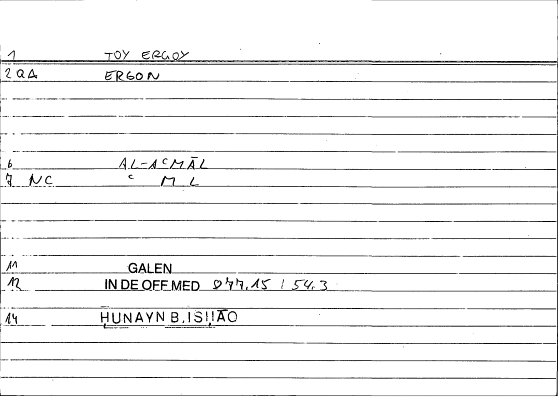 1 TOY ERGOY
2 QA ERGON
6 AL-AᶜMĀL
7 NC ᶜ M L
11 GALEN
12 IN DE OFF MED 977,15 / 54,3
14 ḤUNAYN B. ISḤĀQ